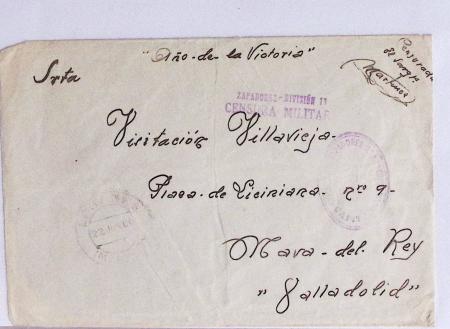 "Año-de-la Victoria"
Censurada
el Sargto
Martinez
Srta
ZAPADORES-DIVISIÓN 1
CENSURA MILITAR
Visitación Villavieja-
Plaza-de Liciniana- nro 9-
Nava-del Rey
"Valladolid"